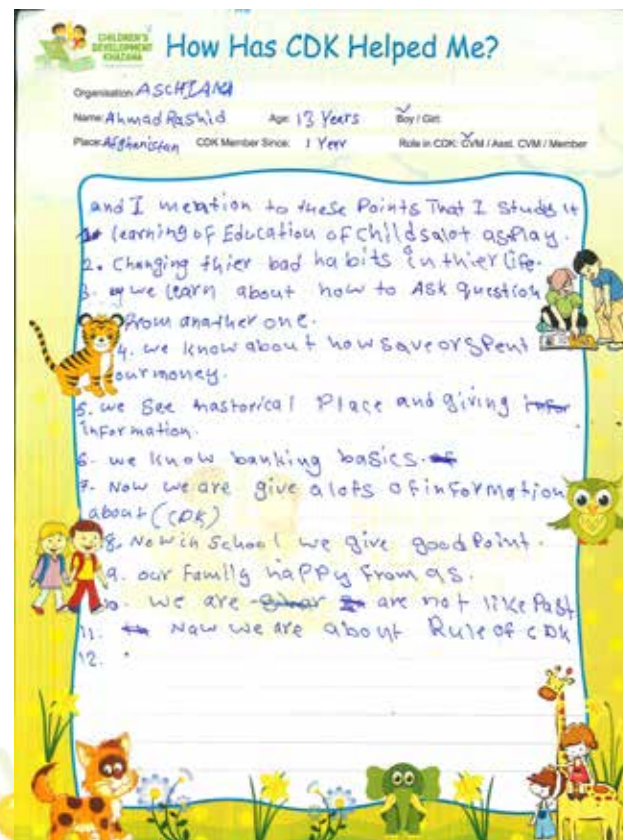 CHILDREN'S
DEVELOPMENT
KHAZANA
How Has CDK Helped Me?
Organisation: ASCHIANA
Name: Ahmad Rashid Age: 13 Years Boy / Girl:
Place: Afghanistan CDK Member Since: 1 Year Role in CDK: CVM / Asst. CVM / Member
and I mention to these Points That I study it
learning of Education of childs alot as Play.
2. Changing thier bad habits in thier life.
3. we learn about how to Ask question
From anather one.
4. we know about how save or spent
our money.
5. we See hastorical Place and giving
information.
6- we know banking basics.
7- Now we are give a lots of information
about (CDK)
8. Now in School we give good Point.
9. our Family happy From as.
we are are not like Past
11. Naw we are about Rule of CDK
12.